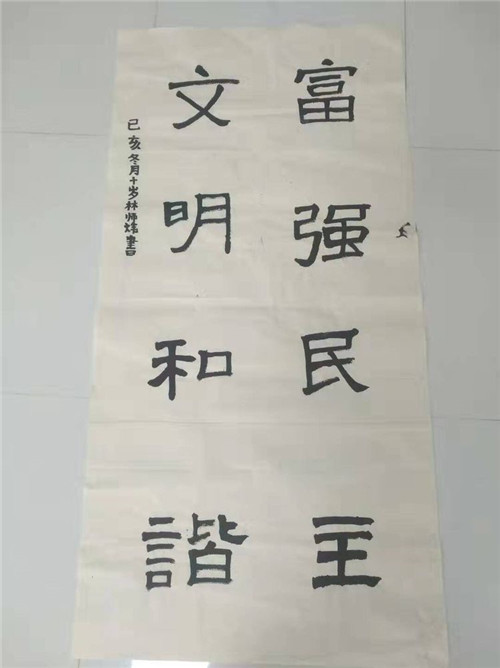 富强民主
文明和諧
己亥冬月十岁林师炜書